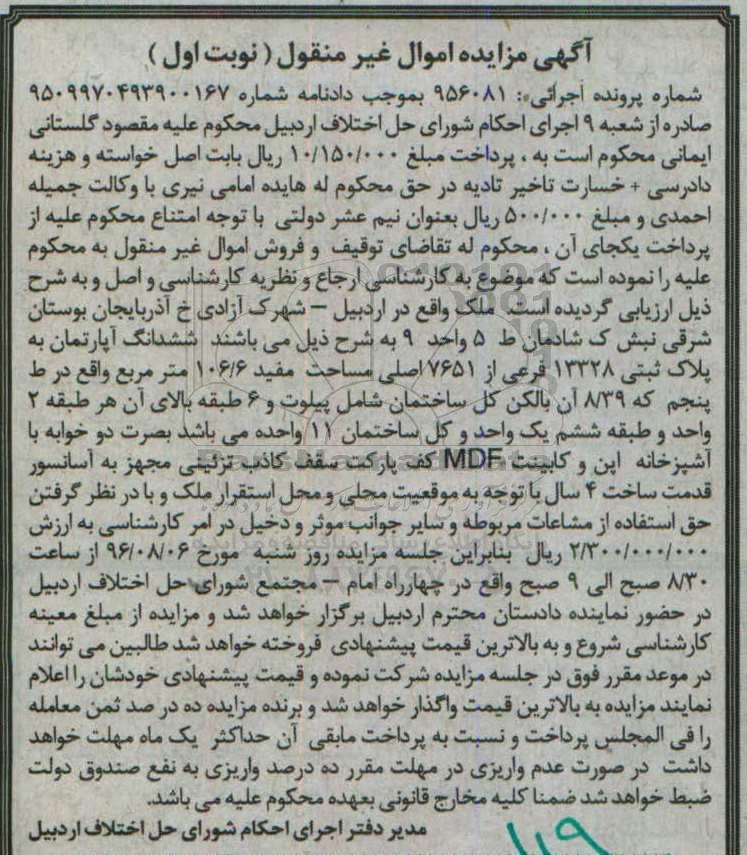 آگهی مزایده اموال غیر منقول ( نوبت اول )
شماره پرونده اجرائی : ۹۵۶۰۸۱ بموجب دادنامه شماره ۹۵۰۹۹۷۰۴۹۳۹۰۰۱۶۷
صادره از شعبه ۹ اجرای احکام شورای حل اختلاف اردبیل محکوم علیه مقصود گلستانی
ایمانی محکوم است به ، پرداخت مبلغ ۱۰/۱۵۰/۰۰۰ ریال بابت اصل خواسته و هزینه
دادرسی + خسارت تاخیر تادیه در حق محکوم له هایده امامی نیری با وکالت جمیله
احمدی و مبلغ ۵۰۰/۰۰۰ ریال بعنوان نیم عشر دولتی با توجه امتناع محکوم علیه از
پرداخت یکجای آن ، محکوم له تقاضای توقیف و فروش اموال غیر منقول به محکوم
علیه را نموده است که موضوع به کارشناسی ارجاع و نظریه کارشناسی و اصل و به شرح
ذیل ارزیابی گردیده است. ملک واقع در اردبیل – شهرک آزادی خ آذربایجان بوستان
شرقی نبش ک شادمان ط ۵ واحد ۹ به شرح ذیل می باشند ششدانگ آپارتمان به
پلاک ثبتی ۱۳۳۲۸ فرعی از ۷۶۵۱ اصلی مساحت مفید ۱۰۶/۶ متر مربع واقع در ط
پنجم که ۸/۳۹ آن بالکن کل ساختمان شامل پیلوت و ۶ طبقه بالای آن هر طبقه ۲
واحد و طبقه ششم یک واحد و کل ساختمان ۱۱ واحده می باشد بصرت دو خوابه با
آشپزخانه اپن و کابینت MDF کف پارکت سقف کاذب تزئینی مجهز به آسانسور
قدمت ساخت ۴ سال با توجه به موقعیت محلی و محل استقرار ملک و با در نظر گرفتن
حق استفاده از مشاعات مربوطه و سایر جوانب موثر و دخیل در امر کارشناسی به ارزش
۲/۳۰۰/۰۰۰/۰۰۰ ریال بنابراین جلسه مزایده روز شنبه مورخ ۹۶/۰۸/۰۶ از ساعت
۸/۳۰ صبح الی ۹ صبح واقع در چهارراه امام – مجتمع شورای حل اختلاف اردبیل
در حضور نماینده دادستان محترم اردبیل برگزار خواهد شد و مزایده از مبلغ معینه
کارشناسی شروع و به بالاترین قیمت پیشنهادی فروخته خواهد شد طالبین می توانند
در موعد مقرر فوق در جلسه مزایده شرکت نموده و قیمت پیشنهادی خودشان را اعلام
نمایند مزایده به بالاترین قیمت واگذار خواهد شد و برنده مزایده ده در صد ثمن معامله
را فی المجلس پرداخت و نسبت به پرداخت مابقی آن حداکثر یک ماه مهلت خواهد
داشت در صورت عدم واریزی در مهلت مقرر ده درصد واریزی به نفع صندوق دولت
ضبط خواهد شد ضمنا کلیه مخارج قانونی بعهده محکوم علیه می باشد.
مدیر دفتر اجرای احکام شورای حل اختلاف اردبیل